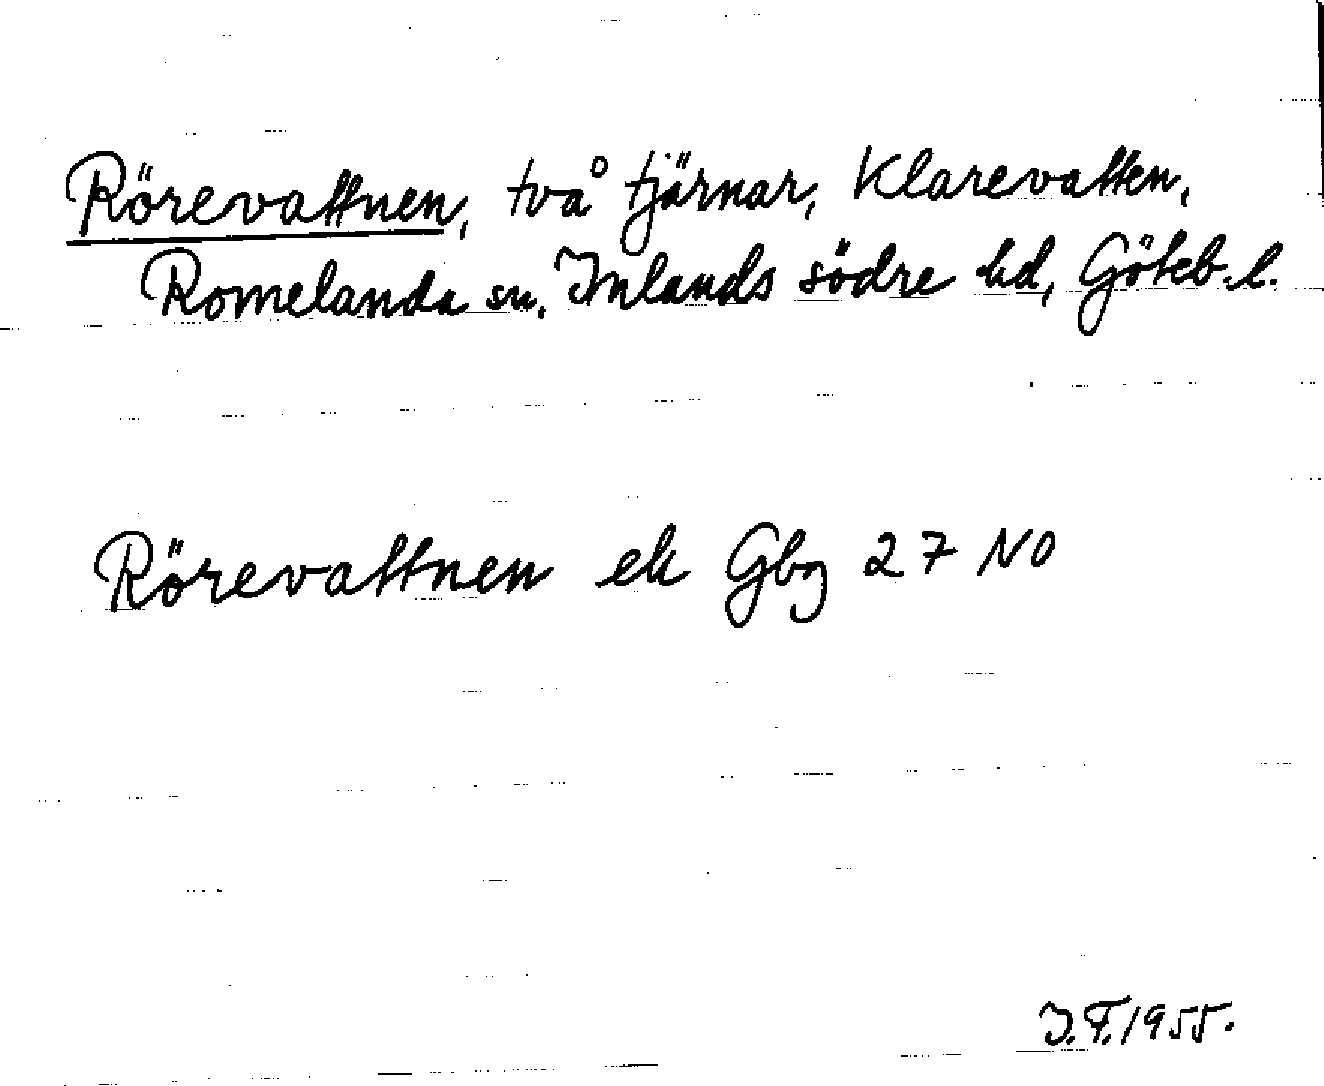 Rörevattnen, två tjärnar, Klarevatten,
Romelanda sn, Inlands södre hd, Göteb. l.
Rörevattnen ek Gbg 27 NO
I.F. 1955.